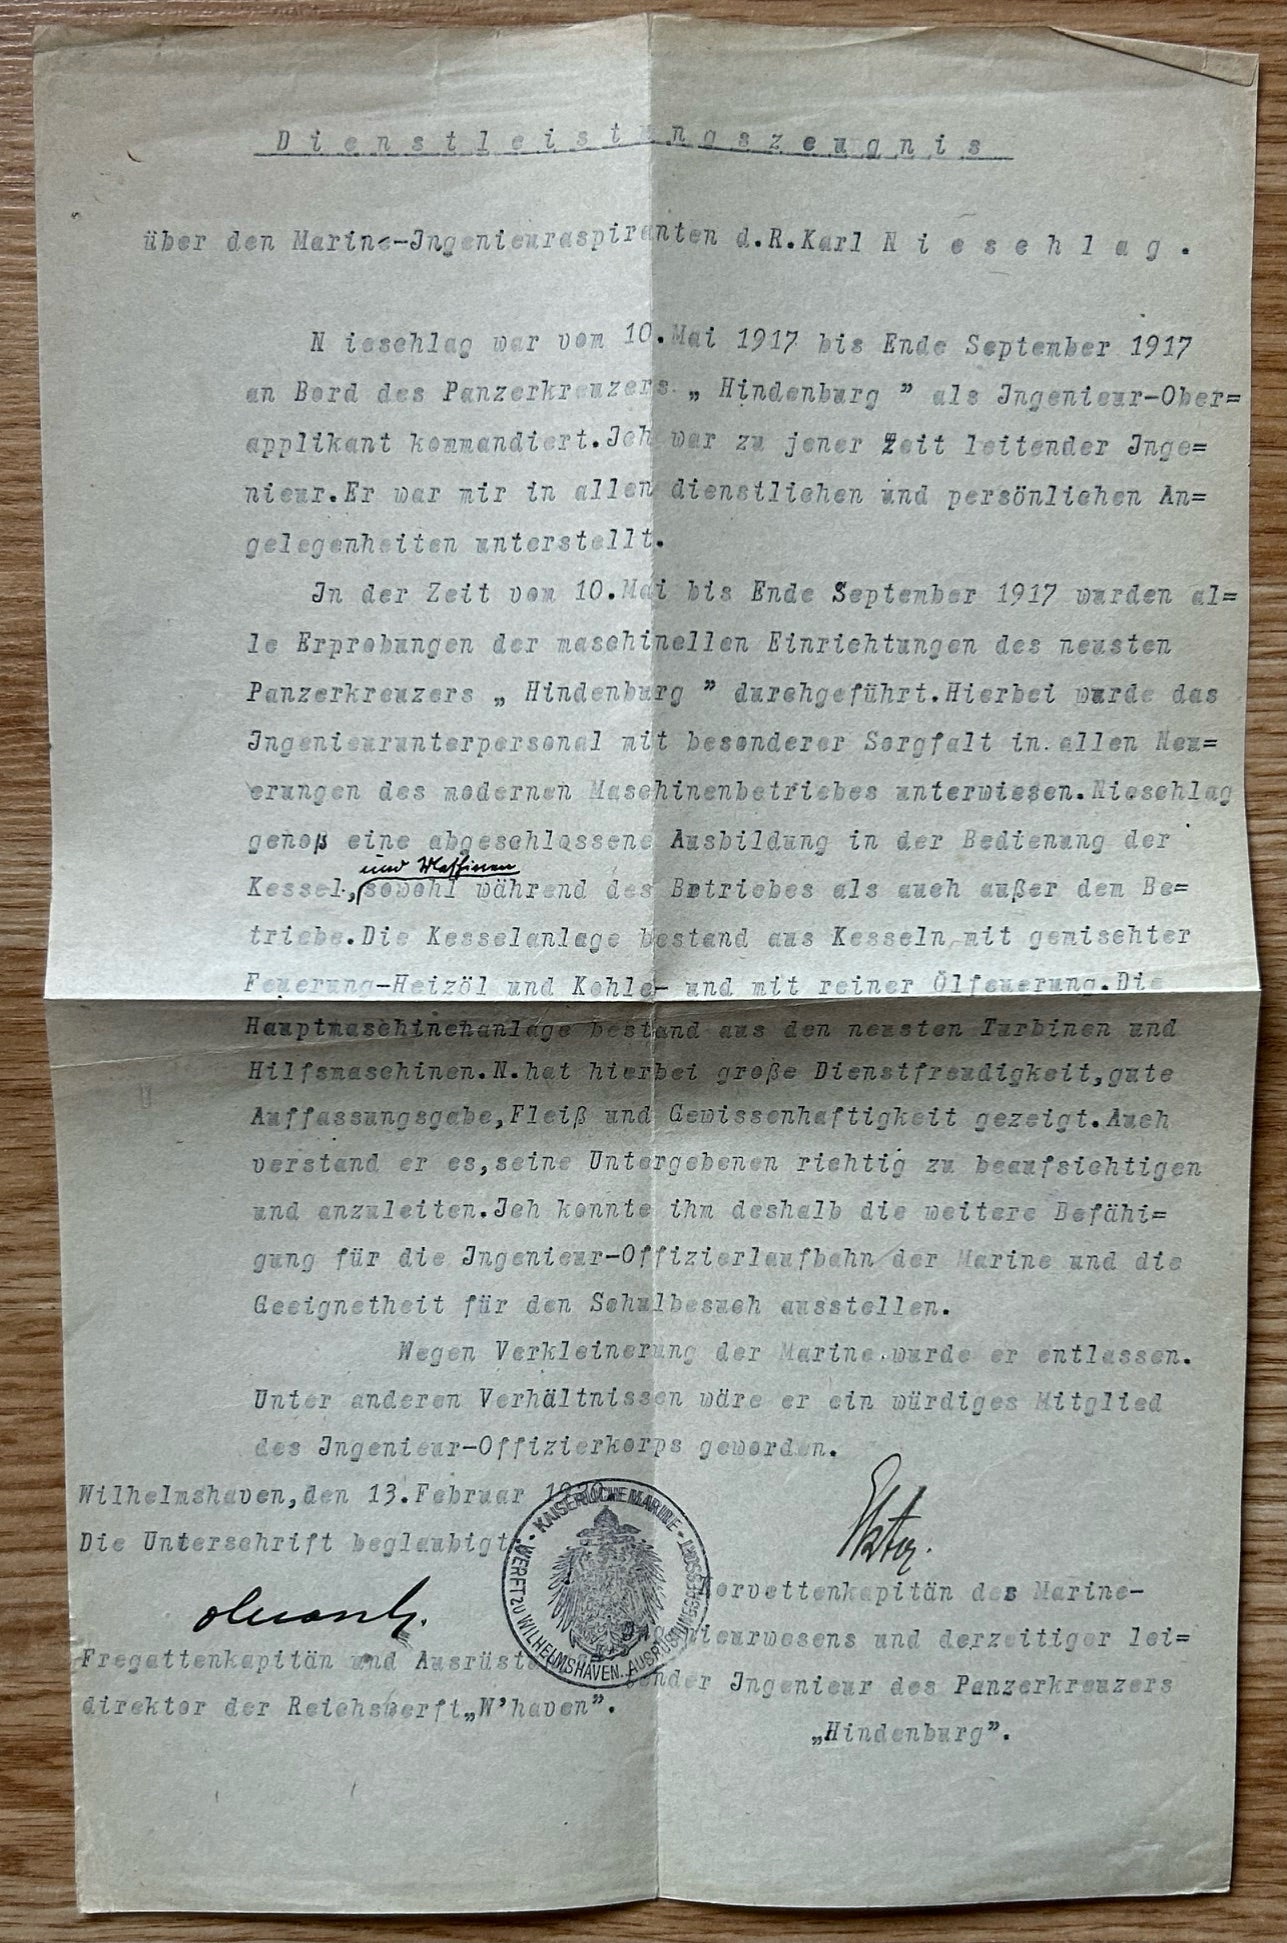 Dienstleistungszeugnis
über den Marine-Ingenieuraspiranten d.R.Karl Nieschlag.
Nieschlag war vom 10.Mai 1917 bis Ende September 1917
an Bord des Panzerkreuzers „ Hindenburg ” als Ingenieur-Ober=
applikant kommandiert.Ich war zu jener Zeit leitender Inge=
nieur.Er war mir in allen dienstlichen und persönlichen An=
gelegenheiten unterstellt.
In der Zeit vom 10.Mai bis Ende September 1917 wurden al=
le Erprobungen der maschinellen Einrichtungen des neusten
Panzerkreuzers „ Hindenburg ” durchgeführt.Hierbei wurde das
Ingenieurunterpersonal mit besonderer Sorgfalt in allen Neu=
erungen des modernen Maschinenbetriebes unterwiesen.Nieschlag
genoß eine abgeschlossene Ausbildung in der Bedienung der
und Maschinen
Kessel, sowohl während des Betriebes als auch außer dem Be=
triebe.Die Kesselanlage bestand aus Kesseln mit gemischter
Feuerung-Heizöl und Kohle- und mit reiner Ölfeuerung.Die
Hauptmaschinenanlage bestand aus den neusten Turbinen und
Hilfsmaschinen.N.hat hierbei große Dienstfreudigkeit,gute
Auffassungsgabe,Fleiß und Gewissenhaftigkeit gezeigt.Auch
verstand er es,seine Untergebenen richtig zu beaufsichtigen
und anzuleiten.Ich konnte ihm deshalb die weitere Befähi=
gung für die Ingenieur-Offizierlaufbahn der Marine und die
Geeignetheit für den Schulbesuch ausstellen.
Wegen Verkleinerung der Marine wurde er entlassen.
Unter anderen Verhältnissen wäre er ein würdiges Mitglied
des Ingenieur-Offizierkorps geworden.
Wilhelmshaven,den 13.Februar 1920
Die Unterschrift beglaubigt:
KAISERLICHE MARINE · AUSRÜSTUNGSRESSORT · WERFT ZU WILHELMSHAVEN.
Fregattenkapitän und Ausrüst
direktor der Reichswerft„W'haven”.
Korvettenkapitän des Marine-
Ingenieurwesens und derzeitiger lei=
tender Ingenieur des Panzerkreuzers
„Hindenburg”.